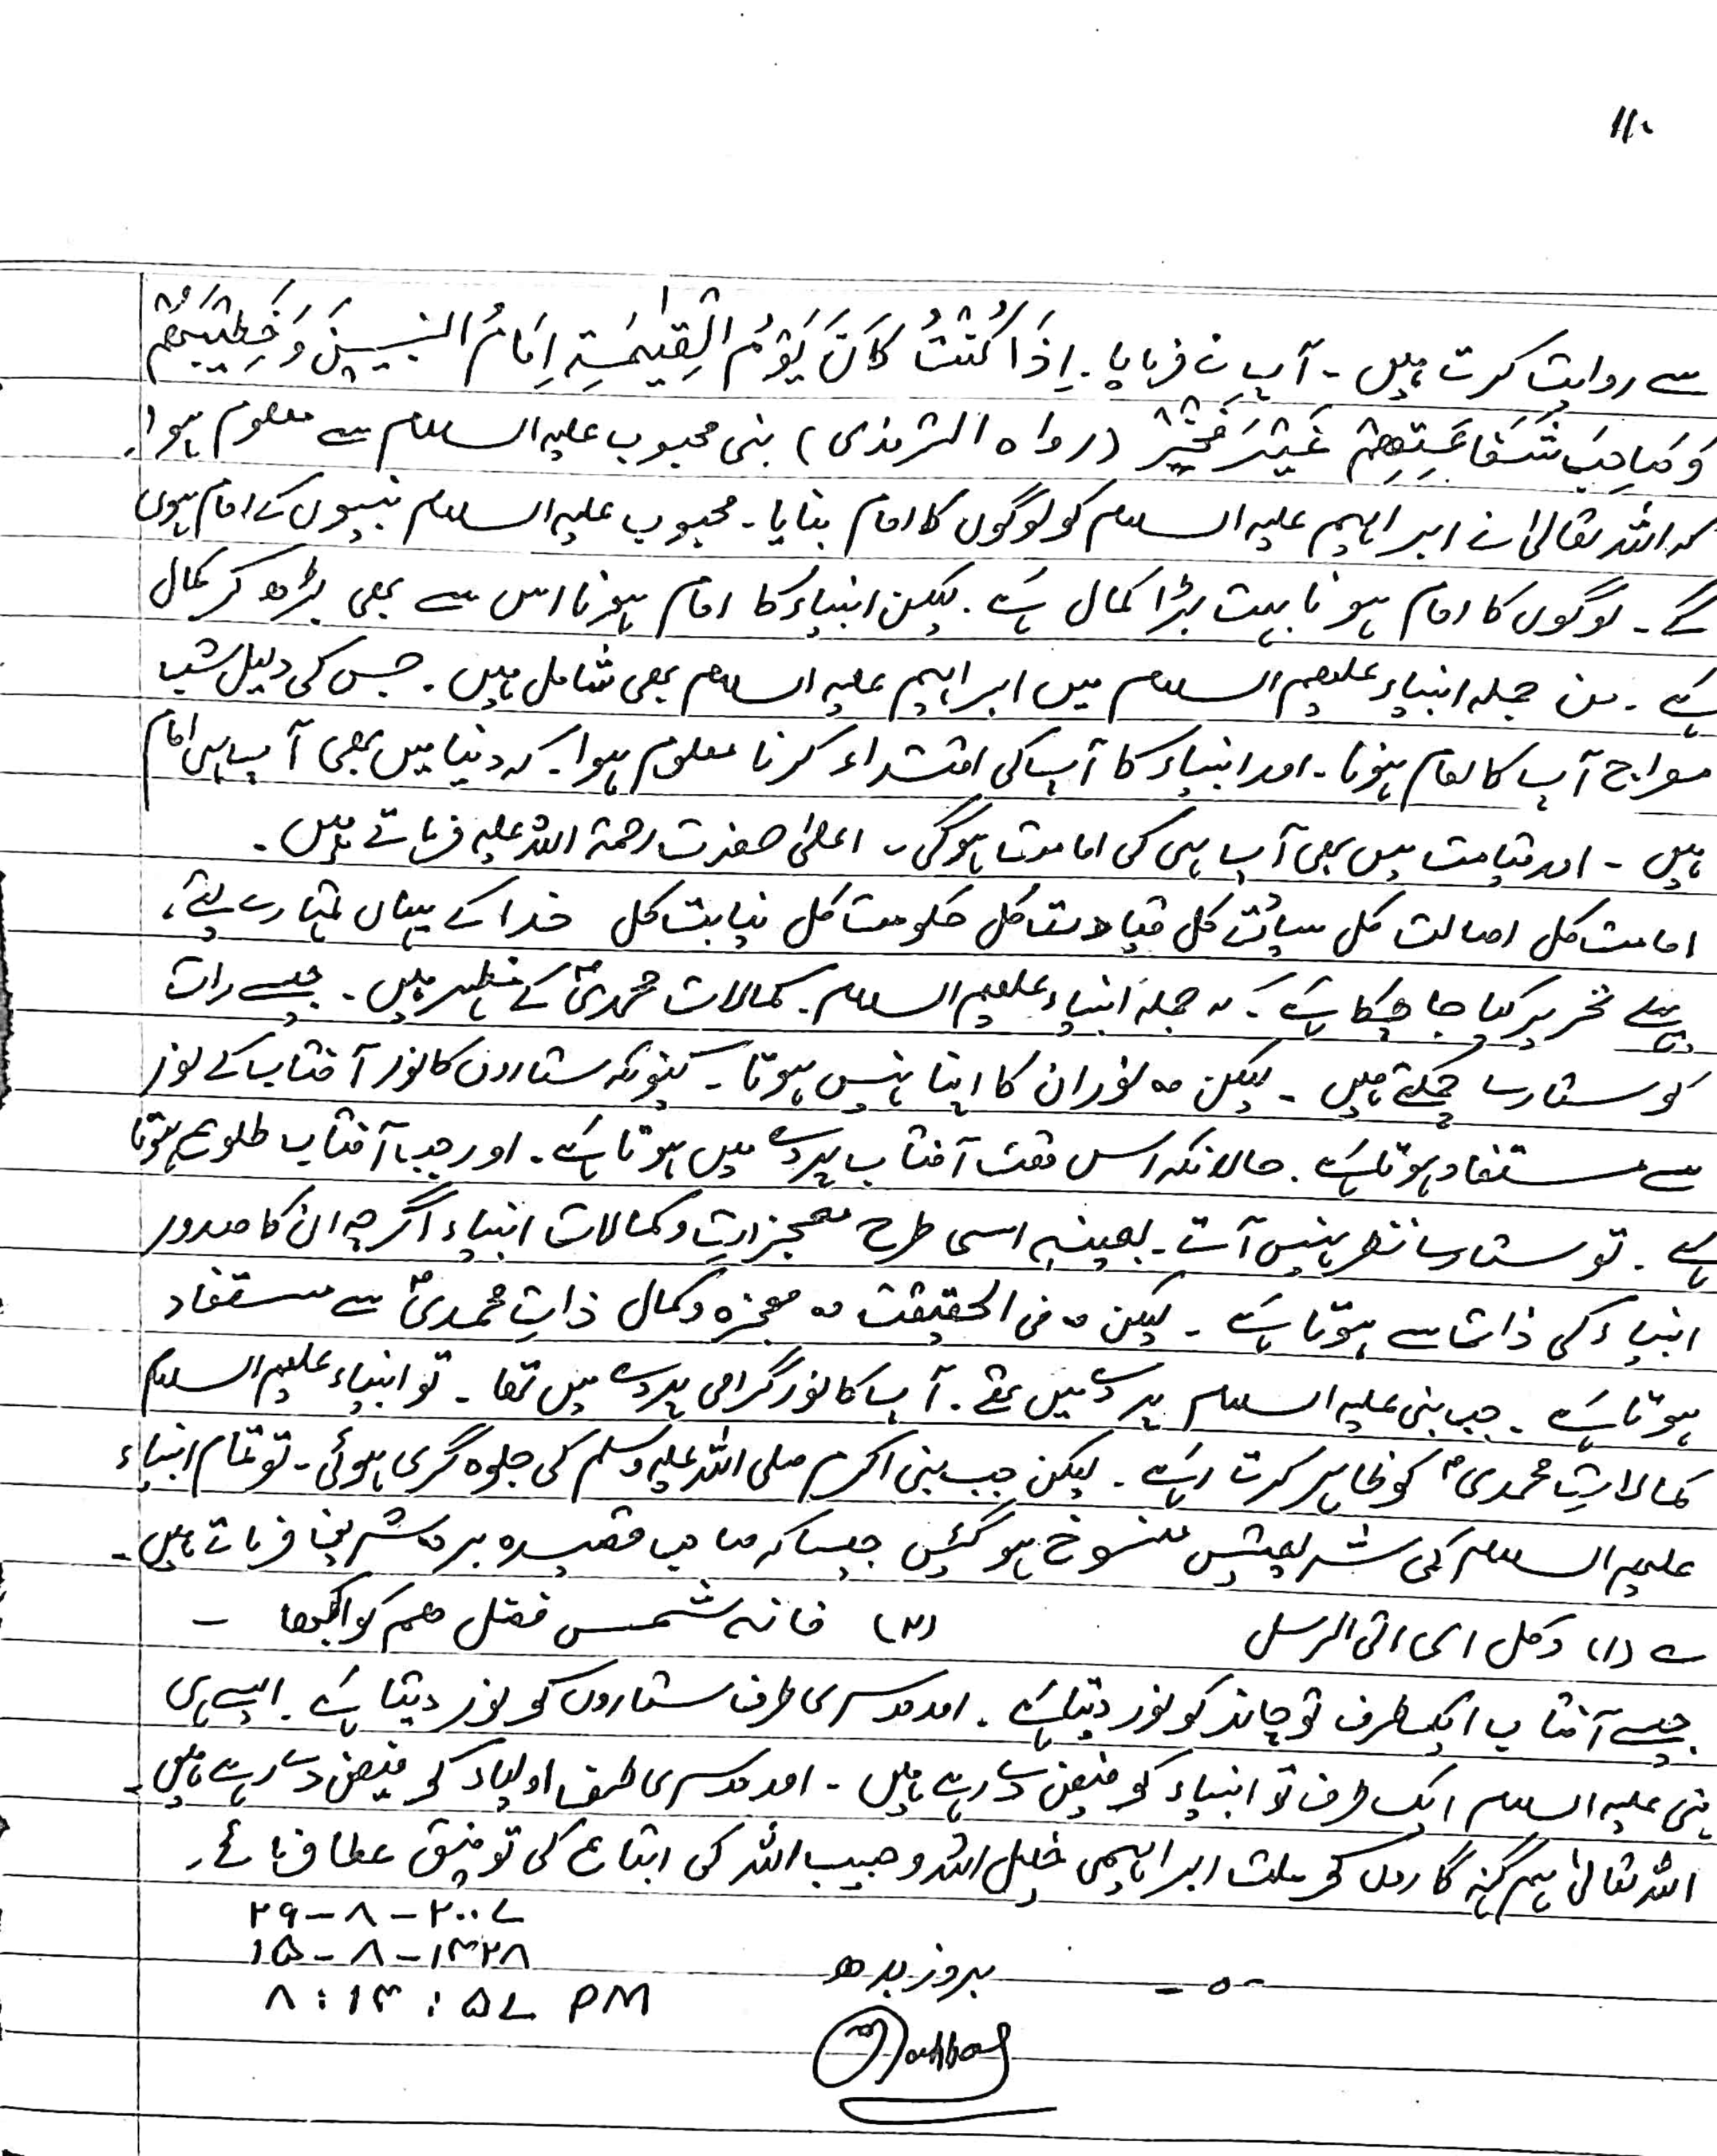 ۱۱۰
سے روایت کرتے ہیں ۔ آپ نے فرمایا ۔ اِذَا كُنْتُ كَانَ يَوْمُ الْقِيٰمَةِ اِمَامُ النبيينَ وَ خَطِيْبَهُمْ
وَ صَاحِبَ شَفَاعَتِهِمْ غَيْرَ فَخْرٍ (رواہ الترمذی) نبی محبوب علیہ السلام سے معلوم ہوا۔
کہ اللہ تعالیٰ نے ابراہیم علیہ السلام کو لوگوں کا امام بنایا ۔ محبوب علیہ السلام نبیوں کے امام ہوں
گے ۔ لوگوں کا امام ہونا بہت بڑا کمال ہے ۔ لیکن انبیاء کا امام ہونا اس سے بھی بڑھ کر کمال
ہے ۔ من جملہ انبیاء علیھم السلام میں ابراہیم علیہ السلام بھی شامل ہیں ۔ جس کی دلیل شب
معراج آپ کا امام ہونا ۔ اور انبیاء کا آپ کی اقتداء کرنا معلوم ہوا ۔ کہ دنیا میں بھی آپ ہی امام
ہیں ۔ اور قیامت میں بھی آپ ہی کی امامت ہوگی ۔ اعلیٰ حضرت رحمۃ اللہ علیہ فرماتے ہیں ۔
امامت کل اصالت کل سیادت کل قیادت کل حکومت کل نیابت کل خدا کے یہاں تمہارے لیے،
پہلے تحریر کیا جا چکا ہے ۔ کہ جملہ انبیاء علیھم السلام ۔ کمالات محمدیؐ کے مظہر ہیں ۔ جیسے رات
کو ستارے چمکتے ہیں ۔ لیکن وہ نور ان کا اپنا نہیں ہوتا ۔ کیونکہ ستاروں کا نور آفتاب کے نور
سے مستفاد ہوتا ہے ۔ حالانکہ اس وقت آفتاب پردے میں ہوتا ہے ۔ اور جب آفتاب طلوع ہوتا
ہے ۔ تو ستارے نظر نہیں آتے ۔ بعینہٖ اسی طرح معجزات و کمالات انبیاء اگرچہ ان کا صدور
انبیاء کی ذات سے ہوتا ہے ۔ لیکن وہ فی الحقیقت وہ معجزہ و کمال ذاتِ محمدیؐ سے مستفاد
ہوتا ہے ۔ جب نبی علیہ السلام پردے میں تھے ۔ آپ کا نور گرامی پردے میں تھا ۔ تو انبیاء علیہم السلام
کمالاتِ محمدیؐ کو ظاہر کرتے رہے ۔ لیکن جب نبی اکرم صلی اللہ علیہ وسلم کی جلوہ گری ہوئی ۔ تو تمام انبیاء
علیھم السلام کی شریعتیں منسوخ ہو گئیں جیسا کہ صاحب قصیدہ بردہ شریف فرماتے ہیں ۔
ے (۱) وکل ای اتی الرسل (۲) فانہ شمس فضل ھم کواکبھا ۔
جیسے آفتاب ایک طرف تو چاند کو نور دیتا ہے ۔ اور دوسری طرف ستاروں کو نور دیتا ہے ۔ ایسے ہی
نبی علیہ السلام ایک طرف تو انبیاء کو فیض دے رہے ہیں ۔ اور دوسری طرف اولیاء کو فیض دے رہے ہیں ۔
اللہ تعالیٰ ہم گنہ گاروں کو ملت ابراہیمی خلیل اللہ و حبیب اللہ کی اتباع کی توفیق عطا فرمائے ۔
۲۹-۸-۲۰۰۷
۱۵-۸-۱۴۲۸
-۰- بروز بدھ
۸:۱۴:۵۷ PM